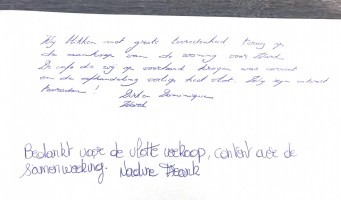 Wij blikken met grote tevredenheid terug op
de aankoop van de woning voor
De info die wij op voorhand kregen was correct
en de afhandeling verliep heel vlot. Zeer
tevreden!
Bedankt voor de vlotte verkoop, content over de
samenwerking. Nadine Frank